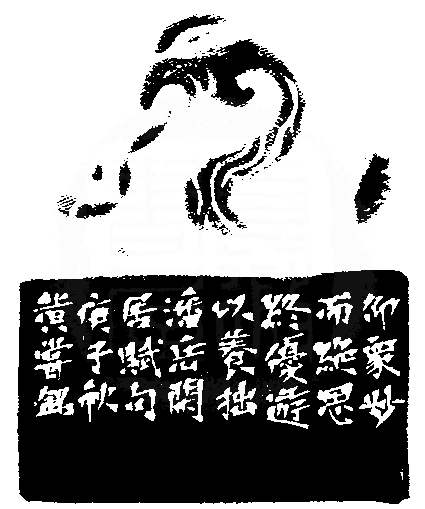 仰衆妙
而絶思
終優遊
以養拙
潘岳閒
居賦句
庚子秋
黃嘗銘